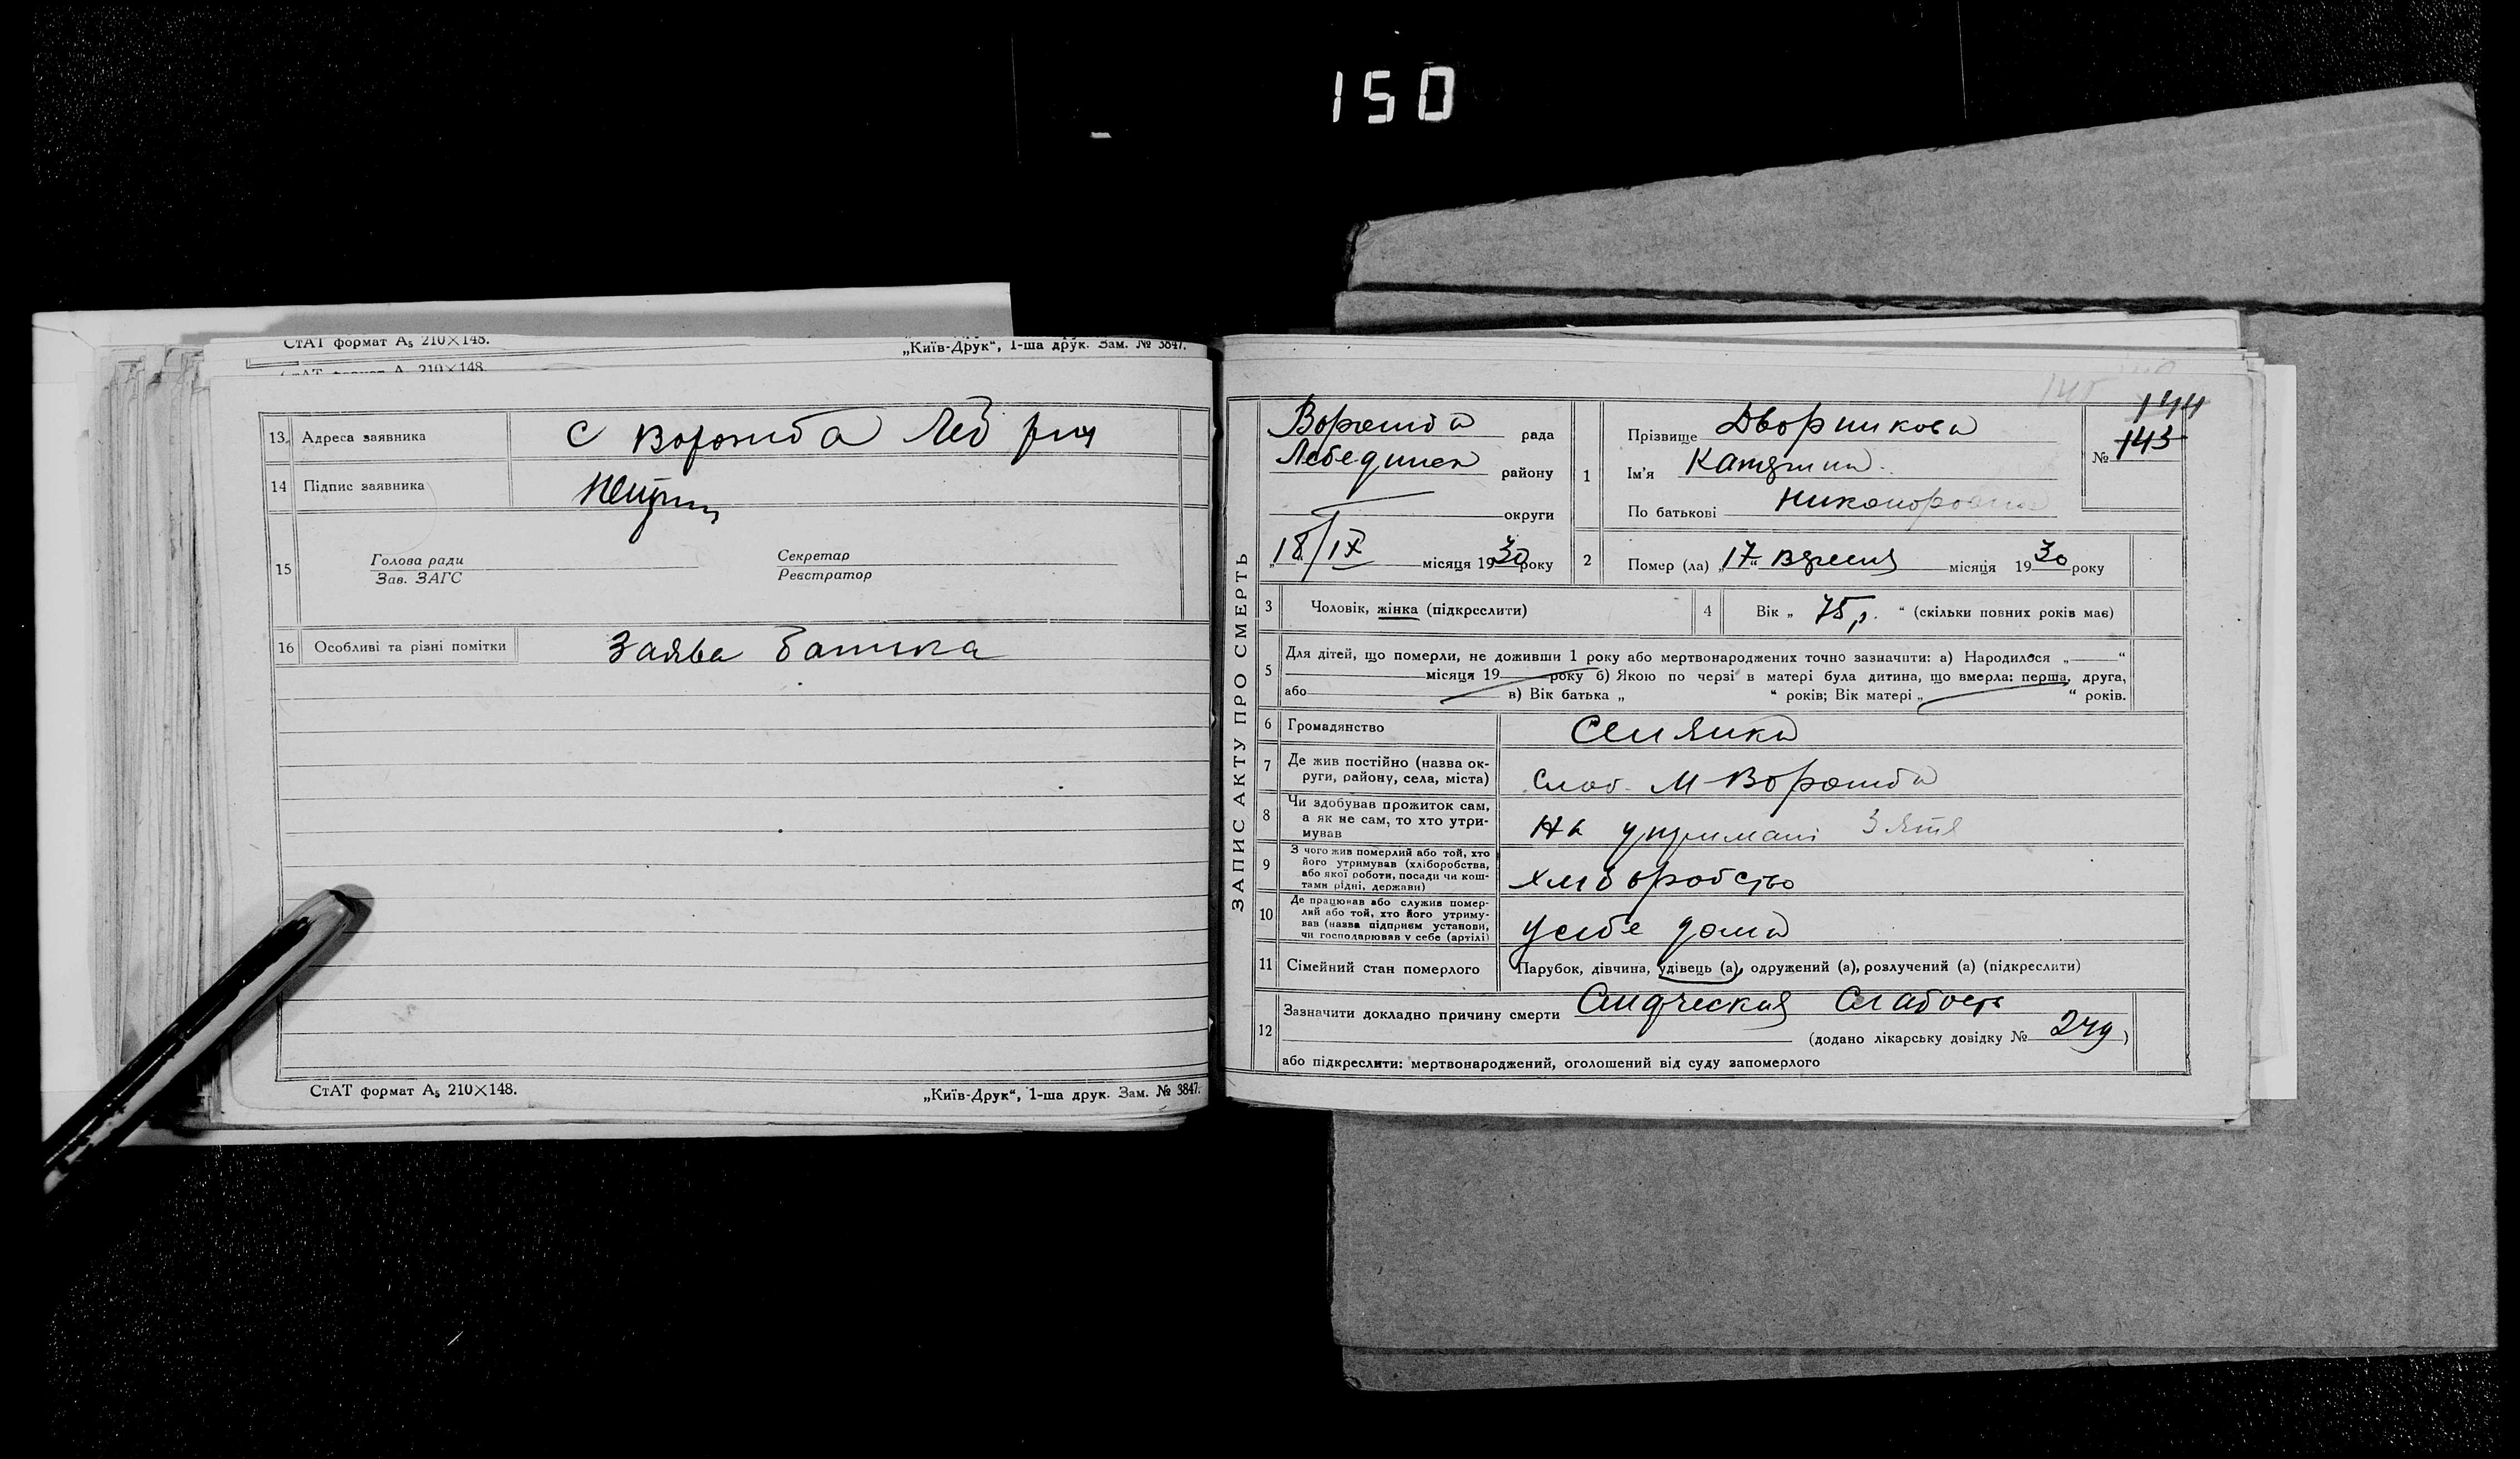 150
СтАТ формат А₅ 210×148.
„Київ-Друк“, 1-ша друк. Зам. № 3847.
210×148.
13 Адреса заявника с Ворожба Леб р-ну
14 Підпис заявника
15 Голова ради Секретар
Зав. ЗАГС Реєстратор
16 Особливі та різні помітки Заява батька
СтАТ формат А₅ 210×148.
„Київ-Друк“, 1-ша друк. Зам. № 3847.
ЗАПИС АКТУ ПРО СМЕРТЬ
Ворожба рада
Лебединськ району
округи
„18/IX місяця 1930 року
144
№ 143
1 Прізвище Дворникова
Ім'я Катерина
По батькові Никоноровна
2 Помер (ла) „17“ вересня місяця 1930 року
3 Чоловік, жінка (підкреслити)
4 Вік „ 75 р. “ (скільки повних років має)
5 Для дітей, що померли, не доживши 1 року або мертвонароджених точно зазначити: а) Народилося „ “
місяця 19 року б) Якою по черзі в матері була дитина, що вмерла: перша, друга,
або в) Вік батька „ “ років; Вік матері „ “ років.
6 Громадянство Селянка
7 Де жив постійно (назва ок-
руги, району, села, міста) слоб. М-Ворожба
8 Чи здобував прожиток сам,
а як не сам, то хто утри-
мував На утримані Зятя
9 З чого жив померлий або той, хто
його утримував (хліборобства,
або якої роботи, посади чи кош-
тами рідні, держави) хліборобство
10 Де працював або служив помер-
лий або той, хто його утриму-
вав (назва підприєм установи,
чи господарював у себе (артілі) у себе дома
11 Сімейний стан померлого Парубок, дівчина, удівець (а), одружений (а), розлучений (а) (підкреслити)
12 Зазначити докладно причину смерти Слабость
(додано лікарську довідку № 249)
або підкреслити: мертвонароджений, оголошений від суду запомерлого